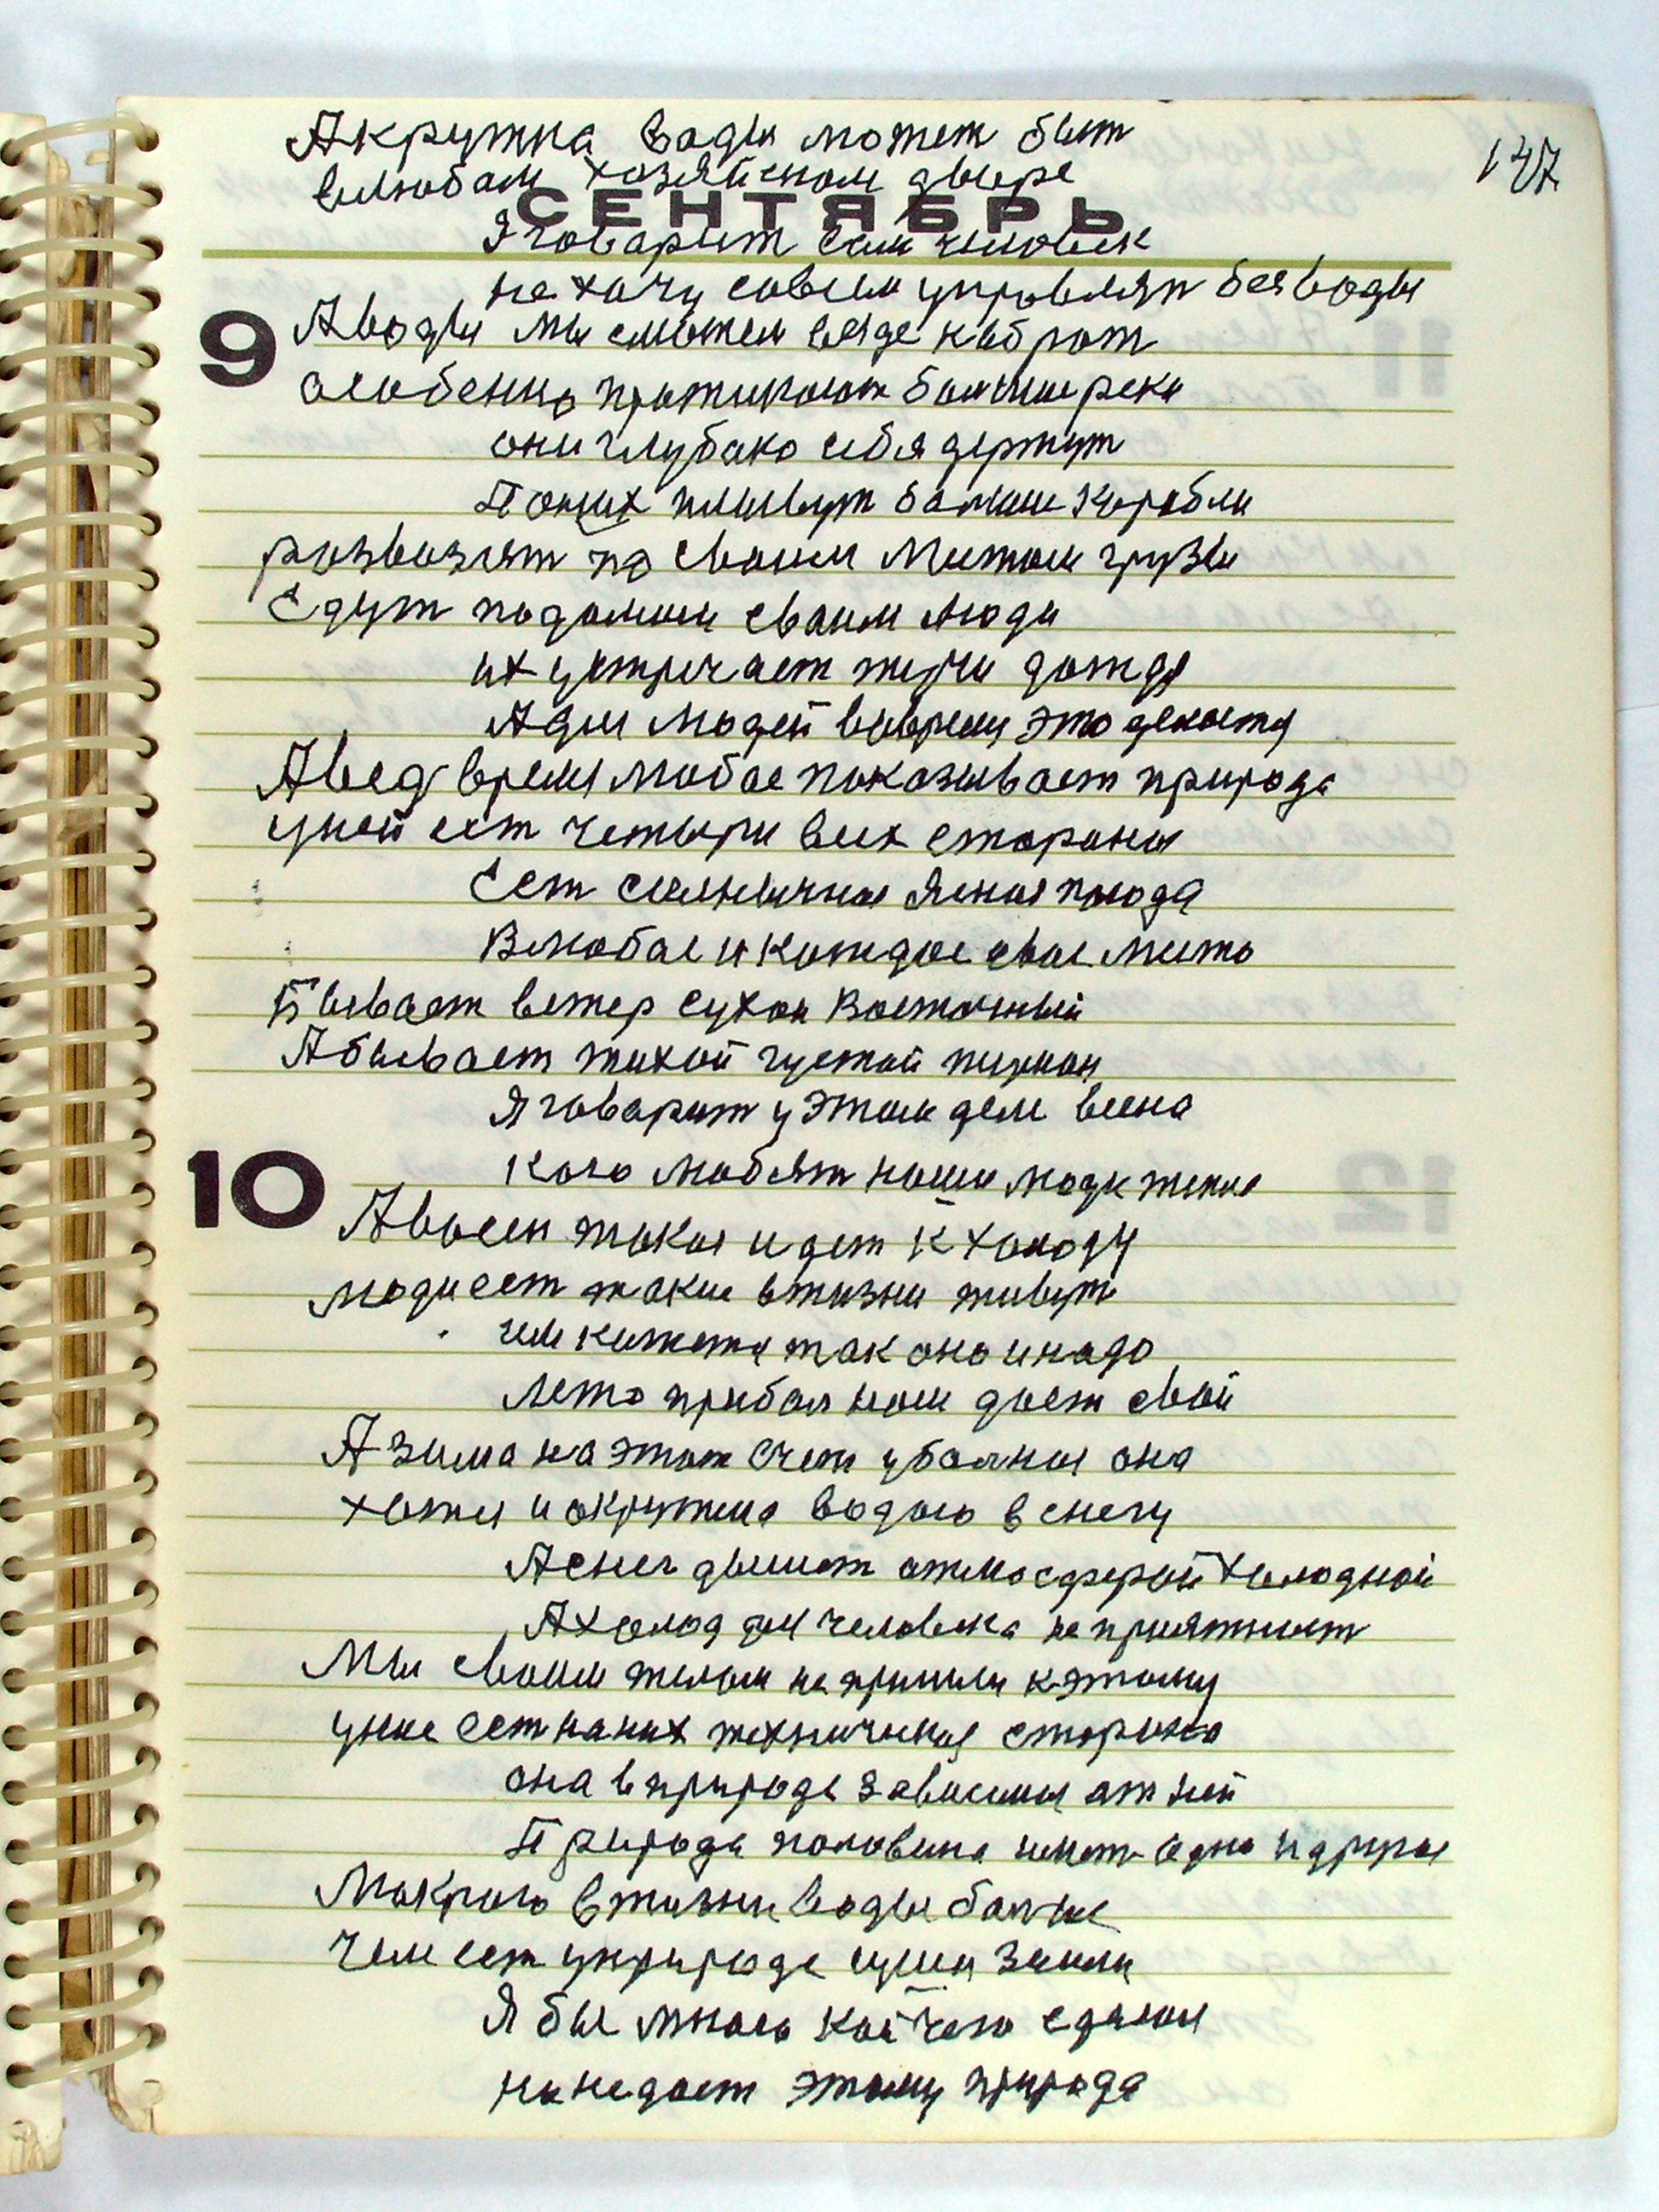 147
А кружка вады может быт
влюбом хозяйском дворе
СЕНТЯБРЬ
Я говарит сам человек
не хачу совсем управлят без воды
9
А воды мы сможем везде набрат
особенно пратикают балшие реки
они глубако себя держут
По них плывут балшие корабли
развозят по своим местам грузы
Едут подомам сваим люди
их устречает тучи дождя
А для людей вовремя это делается
А вед время любое показывает природа
уней ест четыри всех стораны
Ест солнычная ясная погода
В любое и каждое свое место
Бывает ветер сухой Восточный
А бывает тихой густой
Я говарит у этом деле весна
кого любят наши люди
А восен такая идет к холоду
люди ест такие в жизни живут
им кажется так оно и надо
Лето прибыл нам дает свой
А зима на этот счет убочная она
хотя и окружена водою в снегу
А снег дышит атмосферой холодной
А холод для человека не приятност
Мы своим телом не пришли к этому
уних ест наних техническая сторона
она в природе зависима от ней
Природа половина имеет одно и другое
Мокрого в жизни воды болше
чем ест уприроде суши Земли
Я бы много кой чего сделал
но не дает этому природа
10